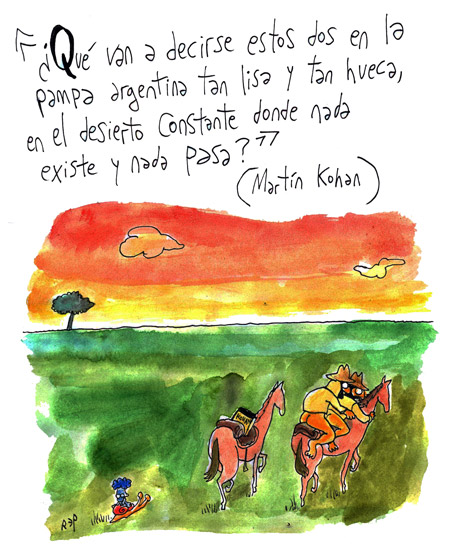 "¿Qué van a decirse estos dos en la
pampa argentina tan lisa y tan hueca,
en el desierto constante donde nada
existe y nada pasa?"
(Martín Kohan)
REP